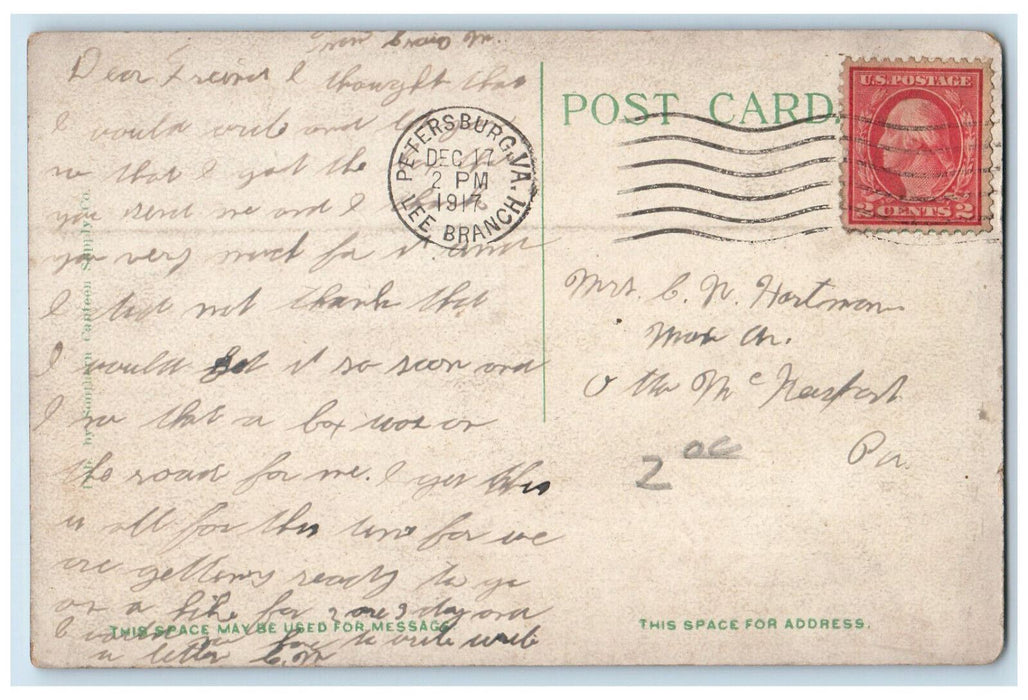 Dear Freind I thought that
I would write and
no that I got the
you send me and I
you very much for it and
I did not thank that
I would get it so soon and
I no that a box was on
the road for me. I gess this
is all for this time for we
are getting ready to go
on a hike for 2 ore 3 day and
I to write write
a letter C.M
Publ. by Southern Canteen Supply Co.
THIS SPACE MAY BE USED FOR MESSAGE
POST CARD.
PETERSBURG, VA.
DEC 17
2 PM
1917
LEE BRANCH
U.S. POSTAGE
2 CENTS 2
Mrs. C. N. Hartman
Otto McKeesport
Pa
2 oc
THIS SPACE FOR ADDRESS.